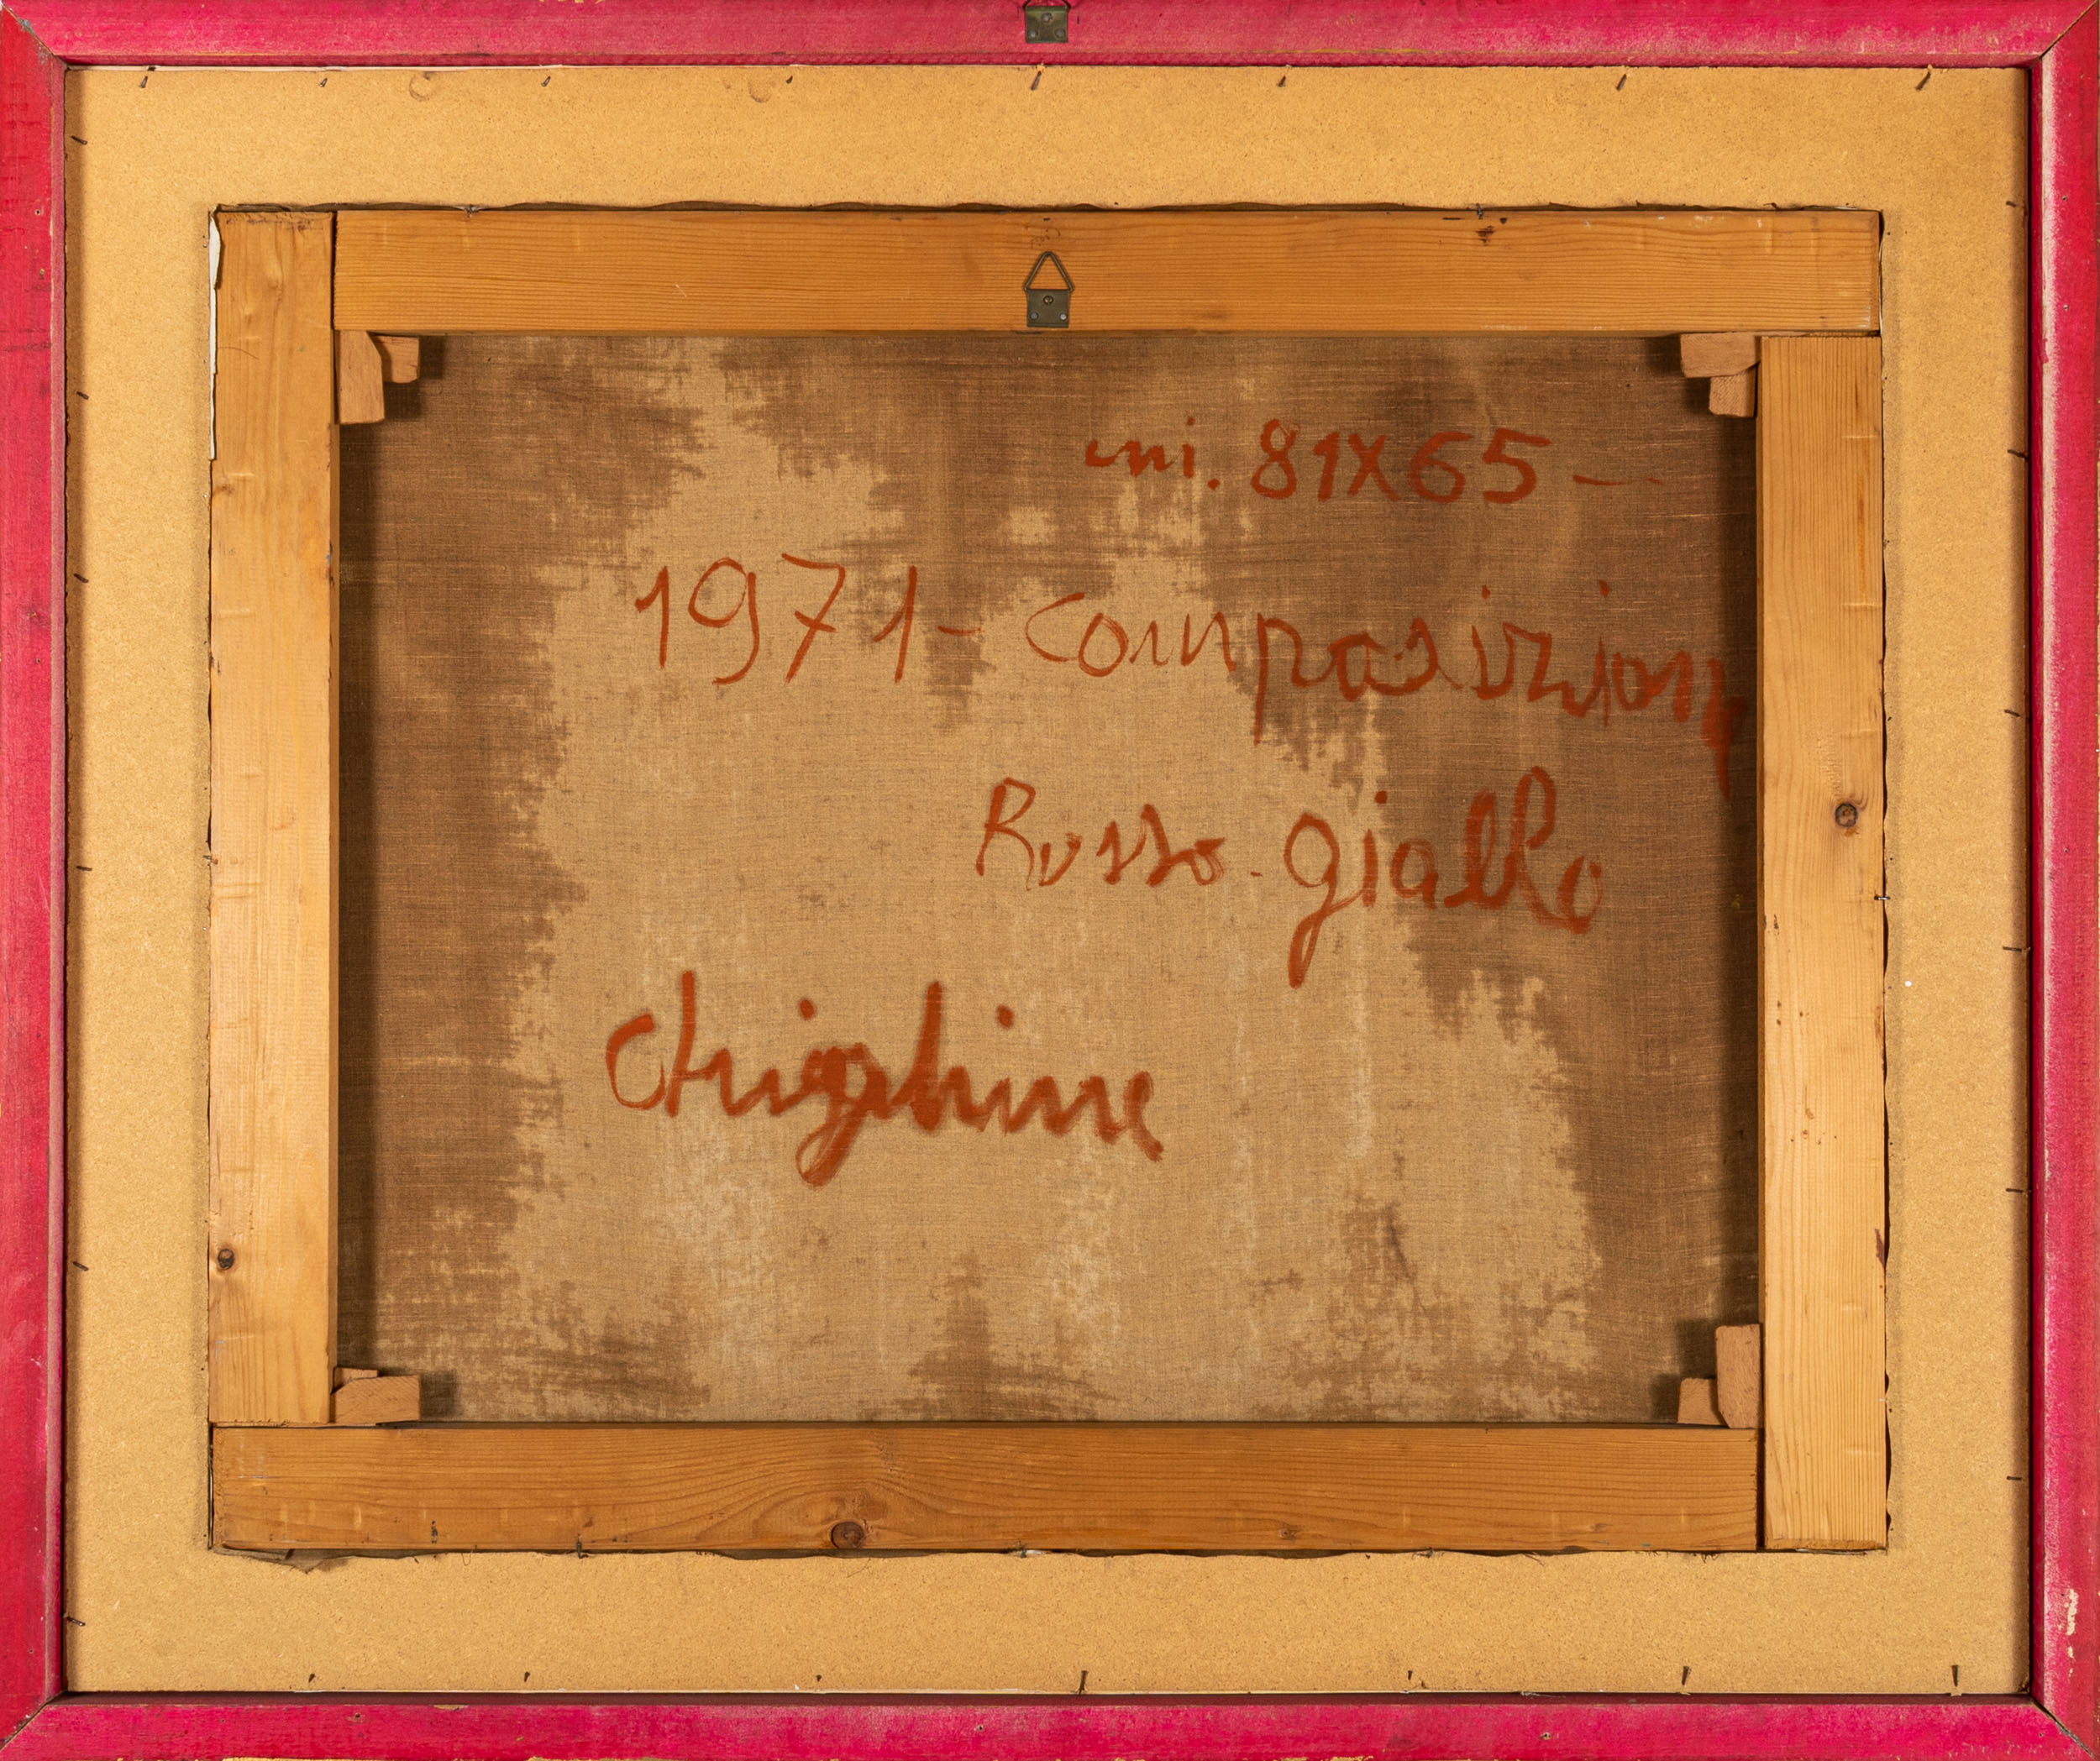 mi. 81X65 -
1971- Composizione
Rosso-giallo
Chighine